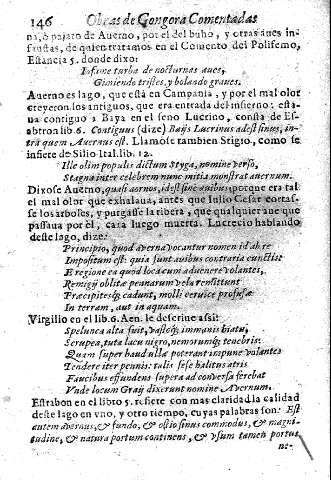 146 Obras de Gongora Comentadas
na, ò pajaro de Auerno, por el del buho, y otras aues in-
faustas, de quien tratamos en el Comento del Polifemo,
Estancia 5. donde dixo:
Infame turba de nocturnas aues,
Gimiendo tristes, y bolando graues.
Auerno es lago, que està en Campania; y por el mal olor
creyeron los antiguos, que era entrada del infierno: esta-
ua contiguo à Baya en el seno Lucrino, consta de Es-
trabon lib. 6. Contiguus (dize) Baijs Lucrinus adest sinus, in-
tra quem Auernus est. Llamose tambien Stigio, como se
infiere de Silio Ital. lib. 12.
Ille olim populis dictum Styga, nomine verso,
Stagna inter celebrem nunc mitia monstrat auernum.
Dixose Auerno, quasi aornos, idest sine auibus, porque era tal
el mal olor que exhalaua, antes que Iulio Cesar cortas-
se los arboles, y purgasse la ribera, que qualquier aue que
passaua por èl, caía luego muerta. Lucrecio hablando
deste lago, dize:
Principio, quod auerna vocantur nomen id ab re
Impositum est: quia sunt auibus contraria cunctis
E regione ea quod loca cum aduenere volantes,
Remigij oblitæ pennarum vela remittunt
Præcipitesq; cadunt, molli ceruice profusæ
In terram, aut in aquam.
Virgilio en el lib. 6. Aen. le descriue assi:
Spelunca alta fuit, vastoq; immanis hiatu,
Scrupea, tuta lacu nigro, nemorumq; tenebris:
Quam super haud ullæ poterant impune volantes
Tendere iter pennis: talis sese halitus atris
Faucibus effundens supera ad conuexa ferebat
Vnde locum Graij dixerunt nomine Auernum.
Estrabon en el libro 5. refiere con mas claridad la calidad
deste lago en vno, y otro tiempo, cuyas palabras son: Est
autem auernus, & fundo, & ostio sinus commodus, & magni-
tudine, & natura portum continens, & vsum tamen portus
ne-